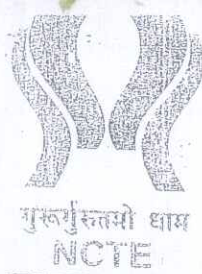 गुरुर्गुरुतमो धाम
NCTE